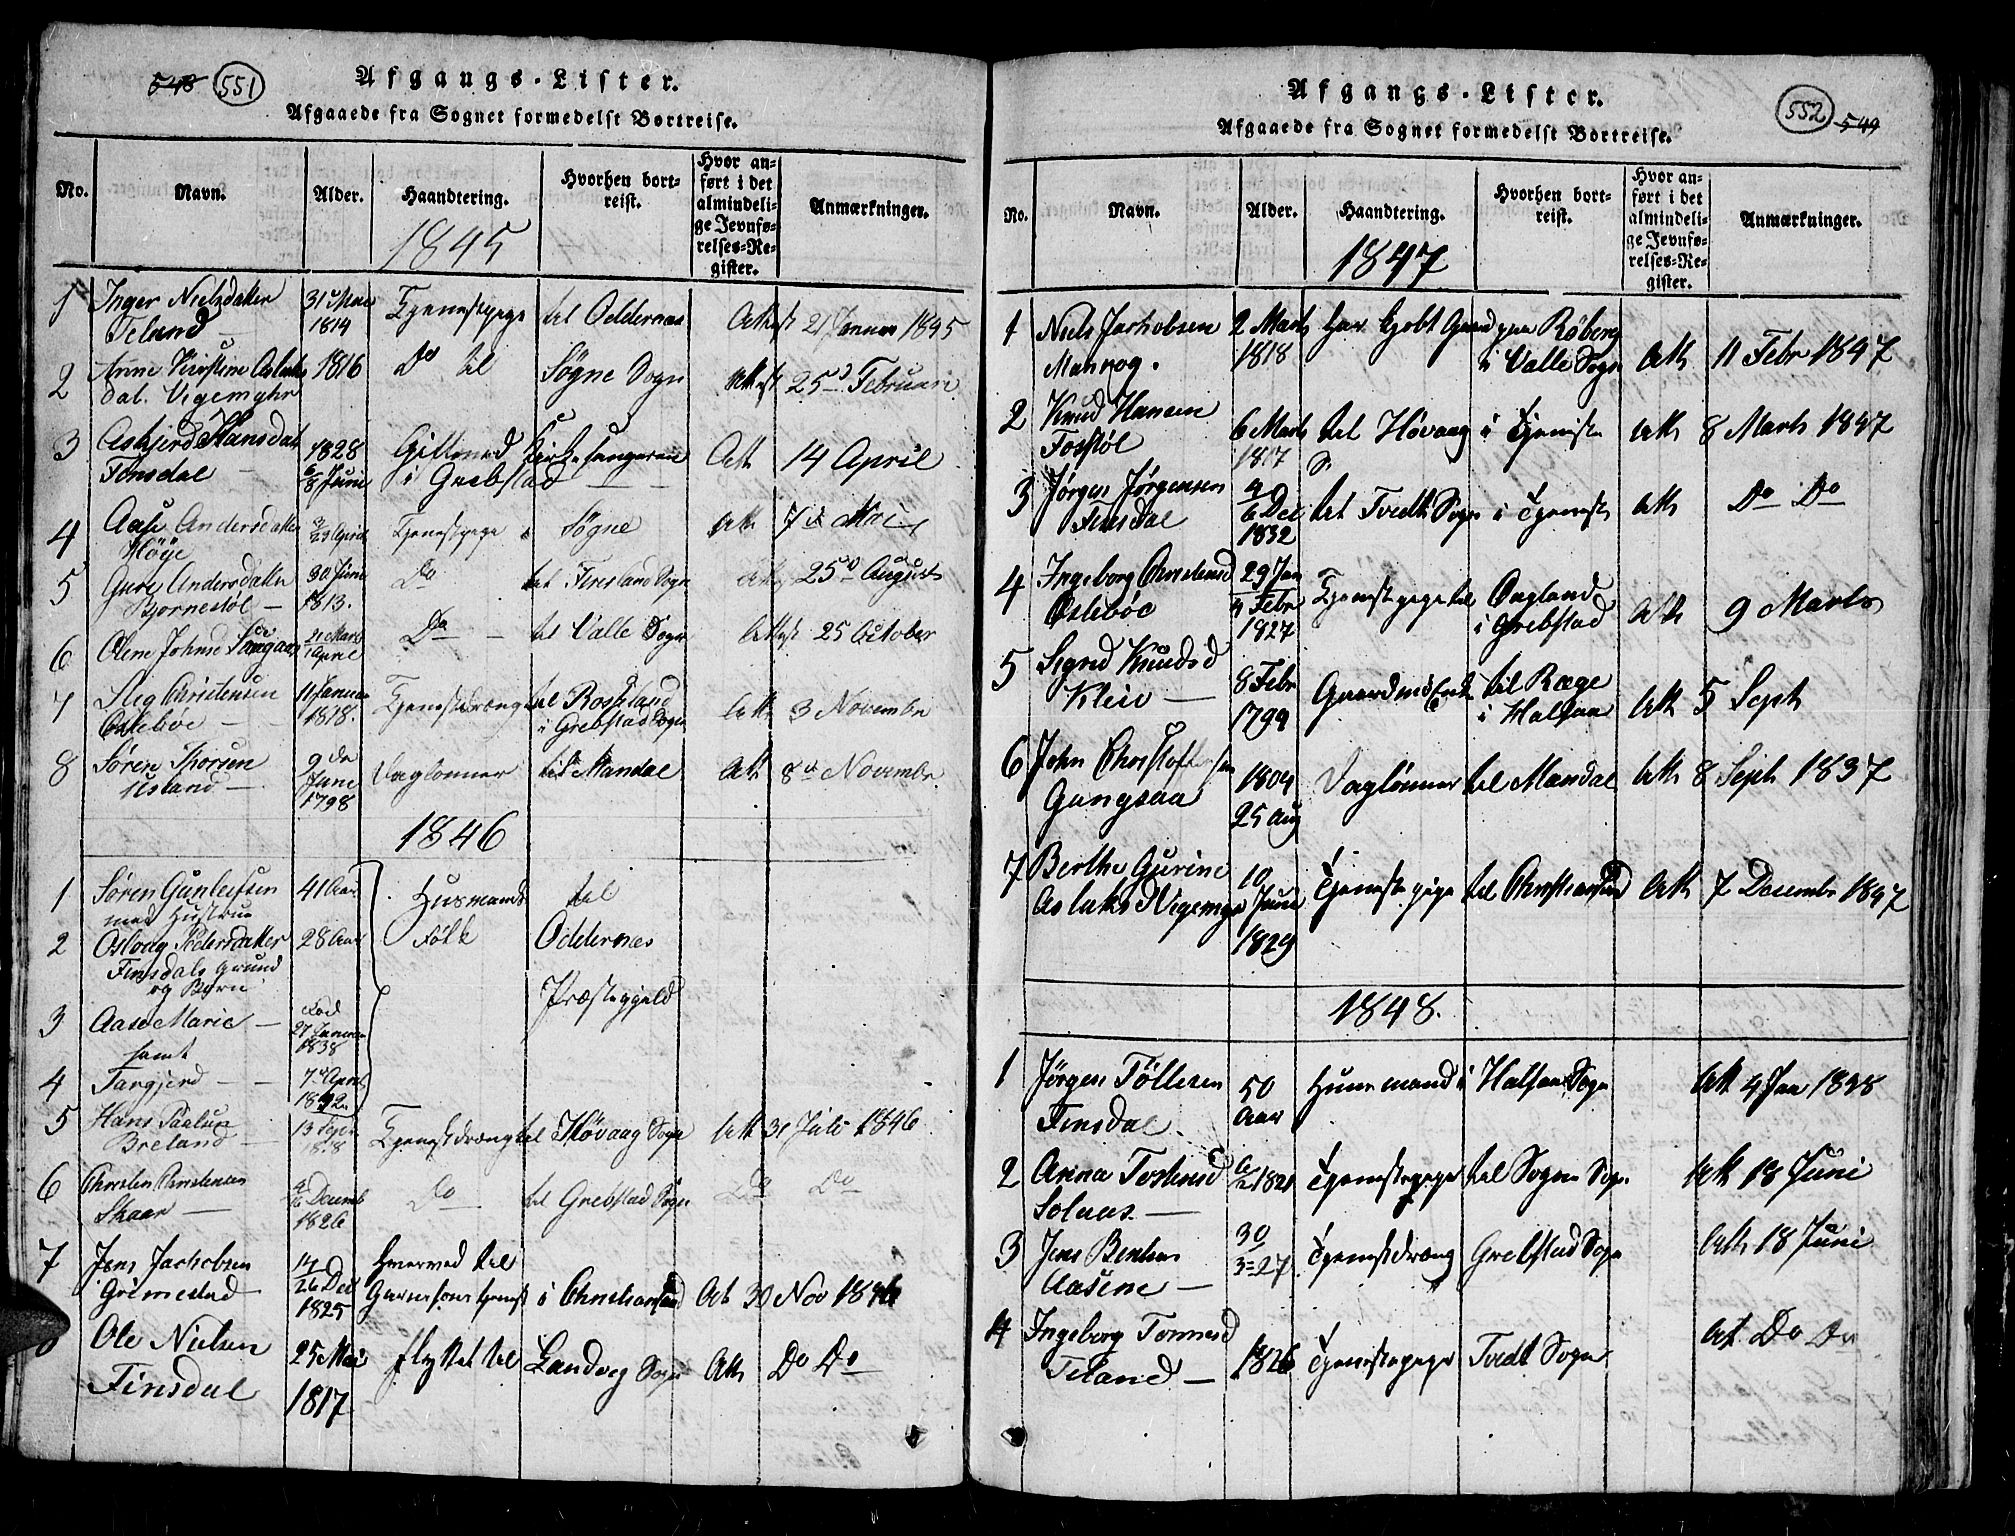 548 551
Afgangs-Lister.
Afgaaede fra Sognet formedelst Bortreise.
No. Navn. Alder. Haandtering. Hvorhen bortreist. Hvor anført i det almindelige Jevnførelses-Register. Anmærkninger.
1845
1 Inger Nielsdatter 31 Mai Tjenestpige til Oddernæs Attest 21 Januar 1845
Teland 1814
2 Anne Kirstine Aslaks 1816 Do til Søgne Sogn Attest 25d Februari
dat. Vigemyhr
3 Asbjerd Hansdat 1828 Gift med Kirkesangeren Att 14 April
Finsdal 8 Juni i Grebstad
4 Aase Andersdatter April Tjenestpige i Søgne Att 7d Mai
Høye
5 Gure Andersdatter 30 Juni Do til Finsland Sogn Att 25d August
Bjornestøl 1813.
6 Olene Johnsd 21 Marts Do til Valle Sogn Attest 25 October
April
7 Stig Christensen 11 Januar Tjenestdræng til Roseland Att 3 Novembr
Osleboe 1818. i Grebstad Sogn
8 Søren Thorsen 9de Daglønner til Mandal Att 8d Novembr
Usland Juni
1798
1846
1 Søren Gunleifsen 41 Aar Husmands til
med Hustrue
2 Aslaug Pedersdatter 28 Aar Folk Oddernæs
Finsdals Grund
og Børn Præstegjeld
3 Aase Marie Fød
27 Januar
samt 1838
4 Targjerd 7d April
1842
5 Hans Paalsen 13 Sept Tjenestdræng til Høvaag Sogn Att 31 Juli 1846
Breland
6 Christen Christensen Decemb Do til Grebstad Sogn Do Do
Skaar 1826
7 Jens Jachobsen 14 Hverved til
Grimestad 26 Dec Garnisons tjenest i Christiansand At 30 Nov 1846
1825
8 Ole Nielsen 25 Mai flyttet til Landvig Sogn Att Do Do
Finsdal 1817
Afgangs-Lister.
552 549
Afgaaede fra Sognet formedelst Bortreise.
No. Navn. Alder. Haandtering. Hvorhen bortreist. Hvor anført i det almindelige Jevnførelses-Register. Anmærkninger.
1847
1 Niels Jachobsen 2 Marts har kjøbt Gaard paa Røberg
Mannog. 1818 i Valle Sogn Att 11 Febr 1847
2 Knud Hansen 6 Marts til Høvaag i Tjeneste Att 8 Marts 1847
Fosstøl 1817 S
3 Jørgen Jørgensen 6 Dec til Tvedt Sogn i Tjenest Att Do Do
Finsdal 1832
4 Ingeborg Christensd 29 Jan Tjenestpige til Øngland
Oslebøe 4 Febr i Grebstad Att 9 Marts
1827
5 Sigrid Knudsd 8 Febr Gaardmds Enke til Ræge
Kleiv 1799 i Halsaa Att 5 Sept
6 John Christoffersen 1804 Daglønner til Mandal Att 8 Sept 1837
Gangsaa 25 Aug
7 Berthe Gurine 10 Tjenestepige til Christiansand Att 7 Decembr 1847
Aslaksd Vigemyr Juni
1829
1848.
1 Jørgen Tøllesen 50 Huusmand i Halsaa Sogn Att 4 Jan 1848
Finsdal Aar
2 Anna Tostensd 1821 Tjenestepige til Sogne Sogn Att 18 Juni
Solaas
3 Jens Bentsen 30 Tjenestdræng Grebstad Sogn Att 18 Juni
Aasene 3=27
4 Ingeborg Tonnesd 1826 Tjenestepige Tvedt Sogn At Do Do
Teland